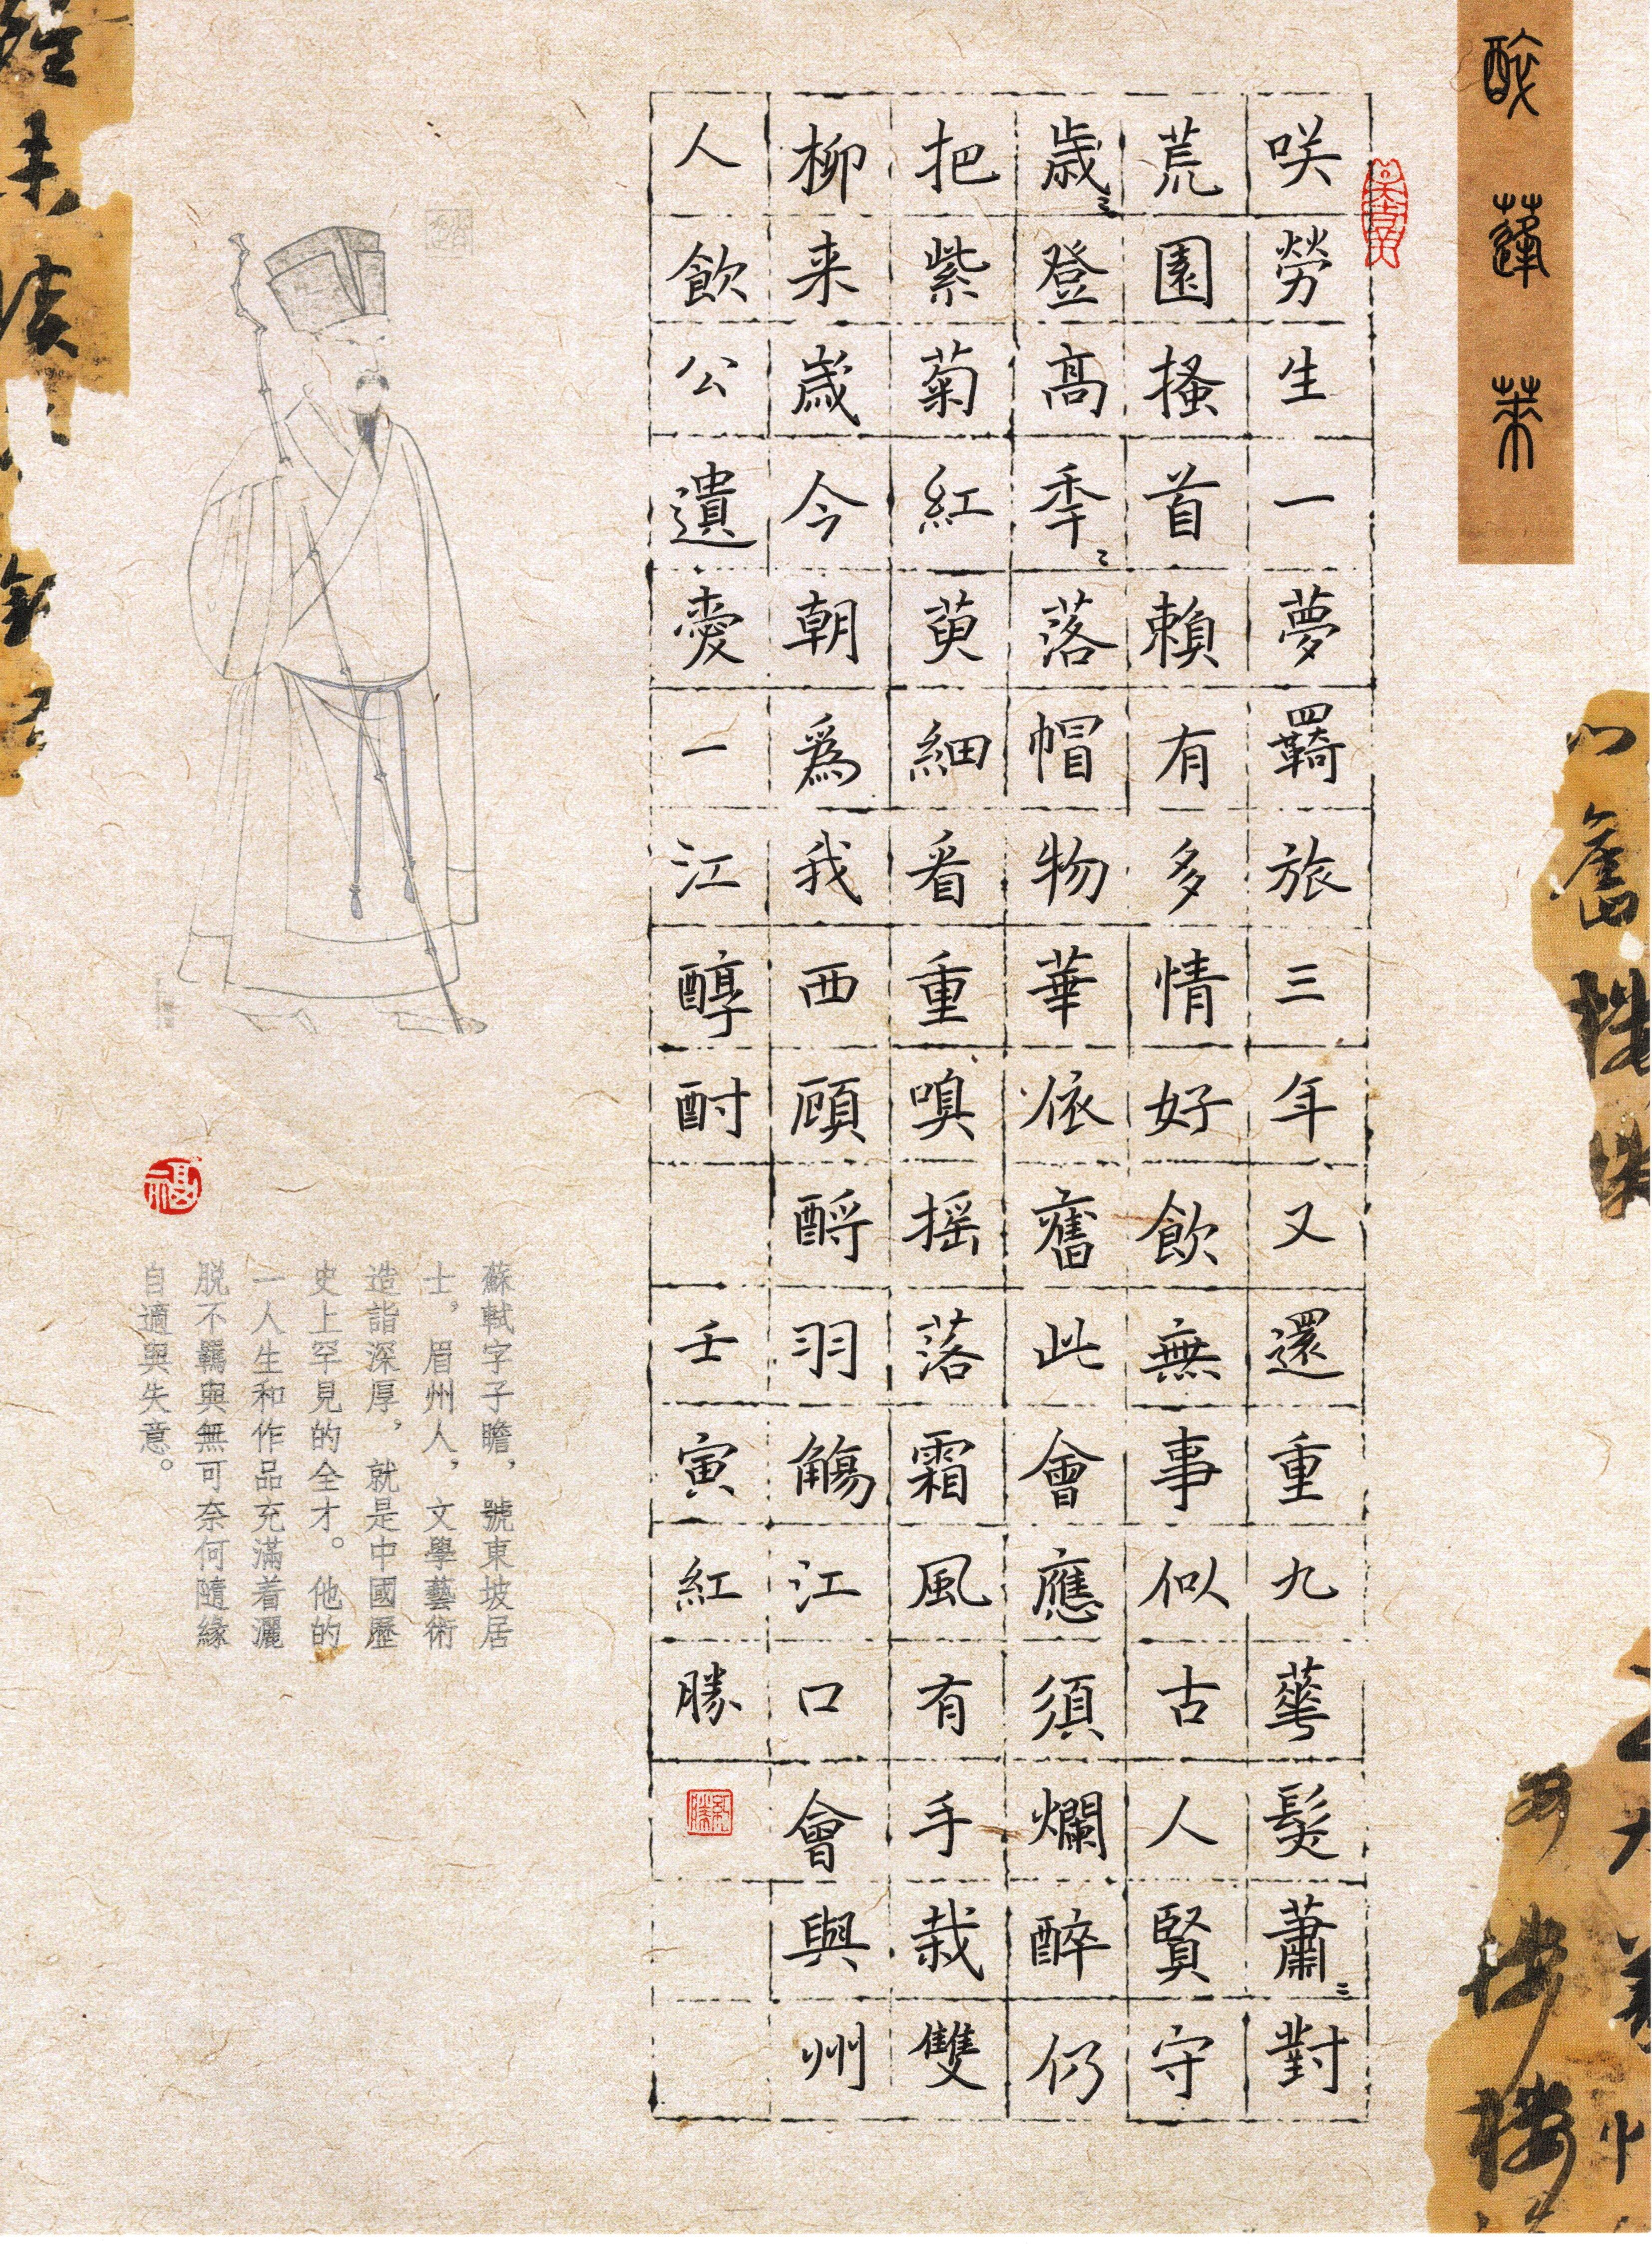 醉蓬萊
咲勞生一夢羇旅三年又還重九華髮蕭〻對
荒園搔首賴有多情好飲無事似古人賢守
歲〻登高秊〻落帽物華依舊此會應須爛醉仍
把紫菊紅萸細看重嗅摇落霜風有手栽雙
柳来歲今朝爲我西顧酹羽觴江口會與州
人飲公遺愛一江醇酎 壬寅紅勝
紅勝
福
蘇軾字子瞻，號東坡居
士，眉州人，文學藝術
造詣深厚，就是中國歷
史上罕見的全才。他的
一人生和作品充滿着灑
脱不羈與無可奈何隨緣
自適與失意。